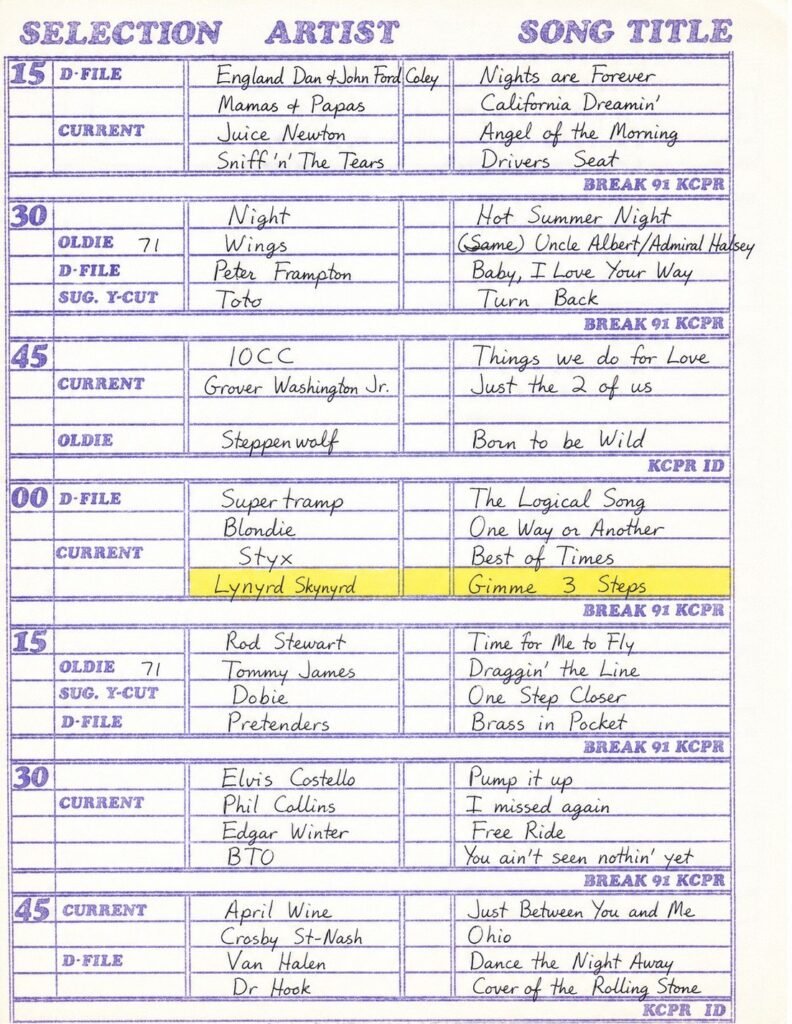 SELECTION ARTIST SONG TITLE
15 D-FILE England Dan & John Ford Coley Nights are Forever
Mamas & Papas California Dreamin'
CURRENT Juice Newton Angel of the Morning
Sniff 'n' The Tears Drivers Seat
BREAK 91 KCPR
30 Night Hot Summer Night
OLDIE 71 Wings (Same) Uncle Albert/Admiral Halsey
D-FILE Peter Frampton Baby, I Love Your Way
SUG. Y-CUT Toto Turn Back
BREAK 91 KCPR
45 10CC Things we do for Love
CURRENT Grover Washington Jr. Just the 2 of us
OLDIE Steppenwolf Born to be Wild
KCPR ID
00 D-FILE Supertramp The Logical Song
Blondie One Way or Another
CURRENT Styx Best of Times
Lynyrd Skynyrd Gimme 3 Steps
BREAK 91 KCPR
15 Rod Stewart Time for Me to Fly
OLDIE 71 Tommy James Draggin' the Line
SUG. Y-CUT Dobie One Step Closer
D-FILE Pretenders Brass in Pocket
BREAK 91 KCPR
30 Elvis Costello Pump it up
CURRENT Phil Collins I missed again
Edgar Winter Free Ride
BTO You ain't seen nothin' yet
BREAK 91 KCPR
45 CURRENT April Wine Just Between You and Me
Crosby St-Nash Ohio
D-FILE Van Halen Dance the Night Away
Dr Hook Cover of the Rolling Stone
KCPR ID